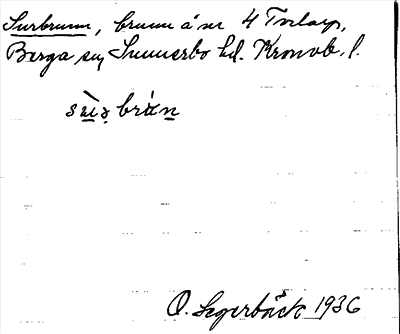 Surbrunn, brunn å nr 4 Torlarp,
Berga sn, Sunnerbo hd. Kronob. l.
O. Segerbäck 1936